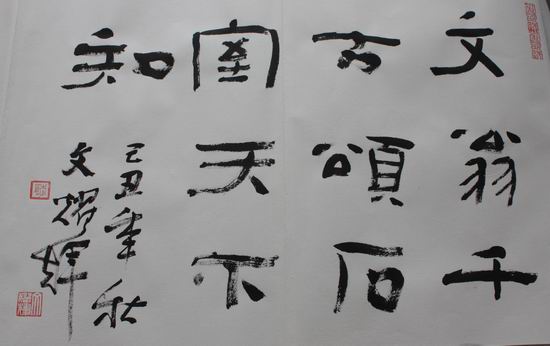 文翁千
古頌石
室天下
知
己丑年秋
文耀輝